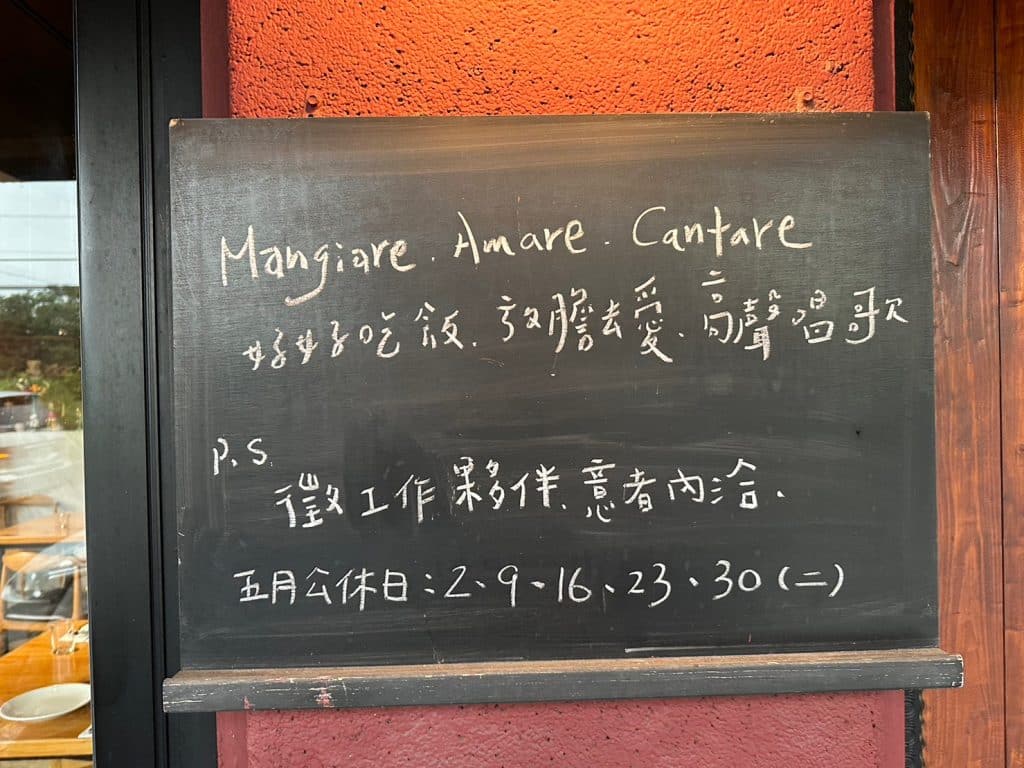 Mangiare. Amare. Cantare
好好吃飯.放膽去愛.高聲唱歌
P.S.
徵工作夥伴、意者內洽.
五月公休日:2、9、16、23、30(二)